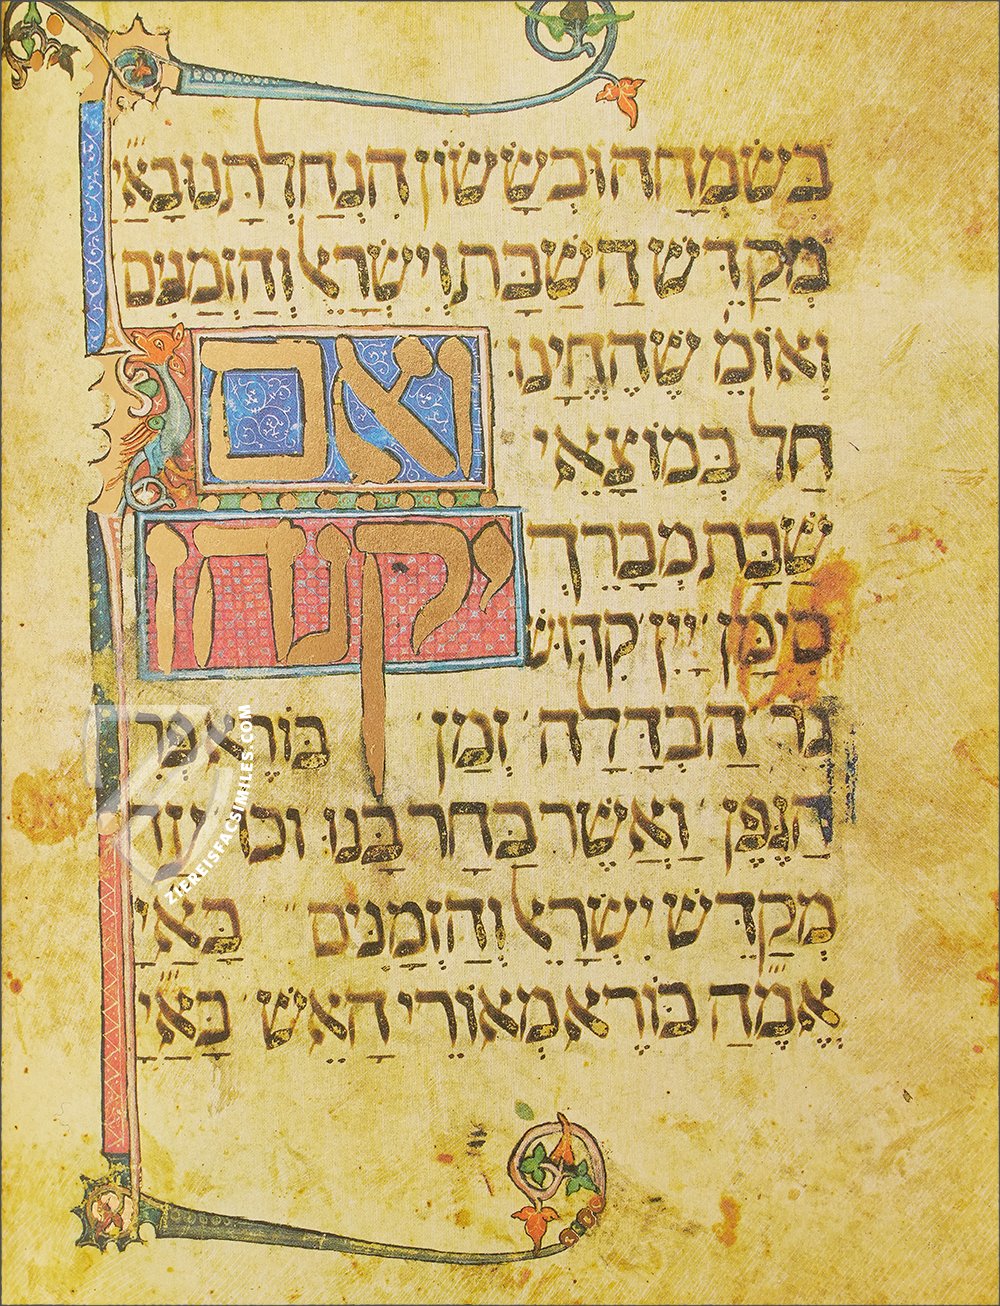 בְּשִׂמְחָה וּבְשָׂשׂוֹן הִנְחַלְתָּנוּ בָּאַיָ
מְקַדֵּשׁ הַשַּׁבָּת וְיִשְׂרָאֵל וְהַזְּמַנִּים
וְאוֹמֵ' שֶׁהֶחֱיָנוּ'
ואם
חַל בְּמוֹצָאֵי
שַׁבָּת מְבָרֵךְ
יקנהז
סִימָן' יַיִן' קִדּוּשׁ
נֵר' הַבְדָּלָה' זְמַן' בּוֹרֵא פְּרִי
הַגֶּפֶן' וַאֲשֶׁר בָּחַר בָּנוּ וכו' עַד
מְקַדֵּשׁ יִשְׂרָאֵל וְהַזְּמַנִּים בָּאַיָ
אֱמֶהַ בּוֹרֵא מְאוֹרֵי הָאֵשׁ' בָּאַיָ
ZIEREISFACSIMILES.COM